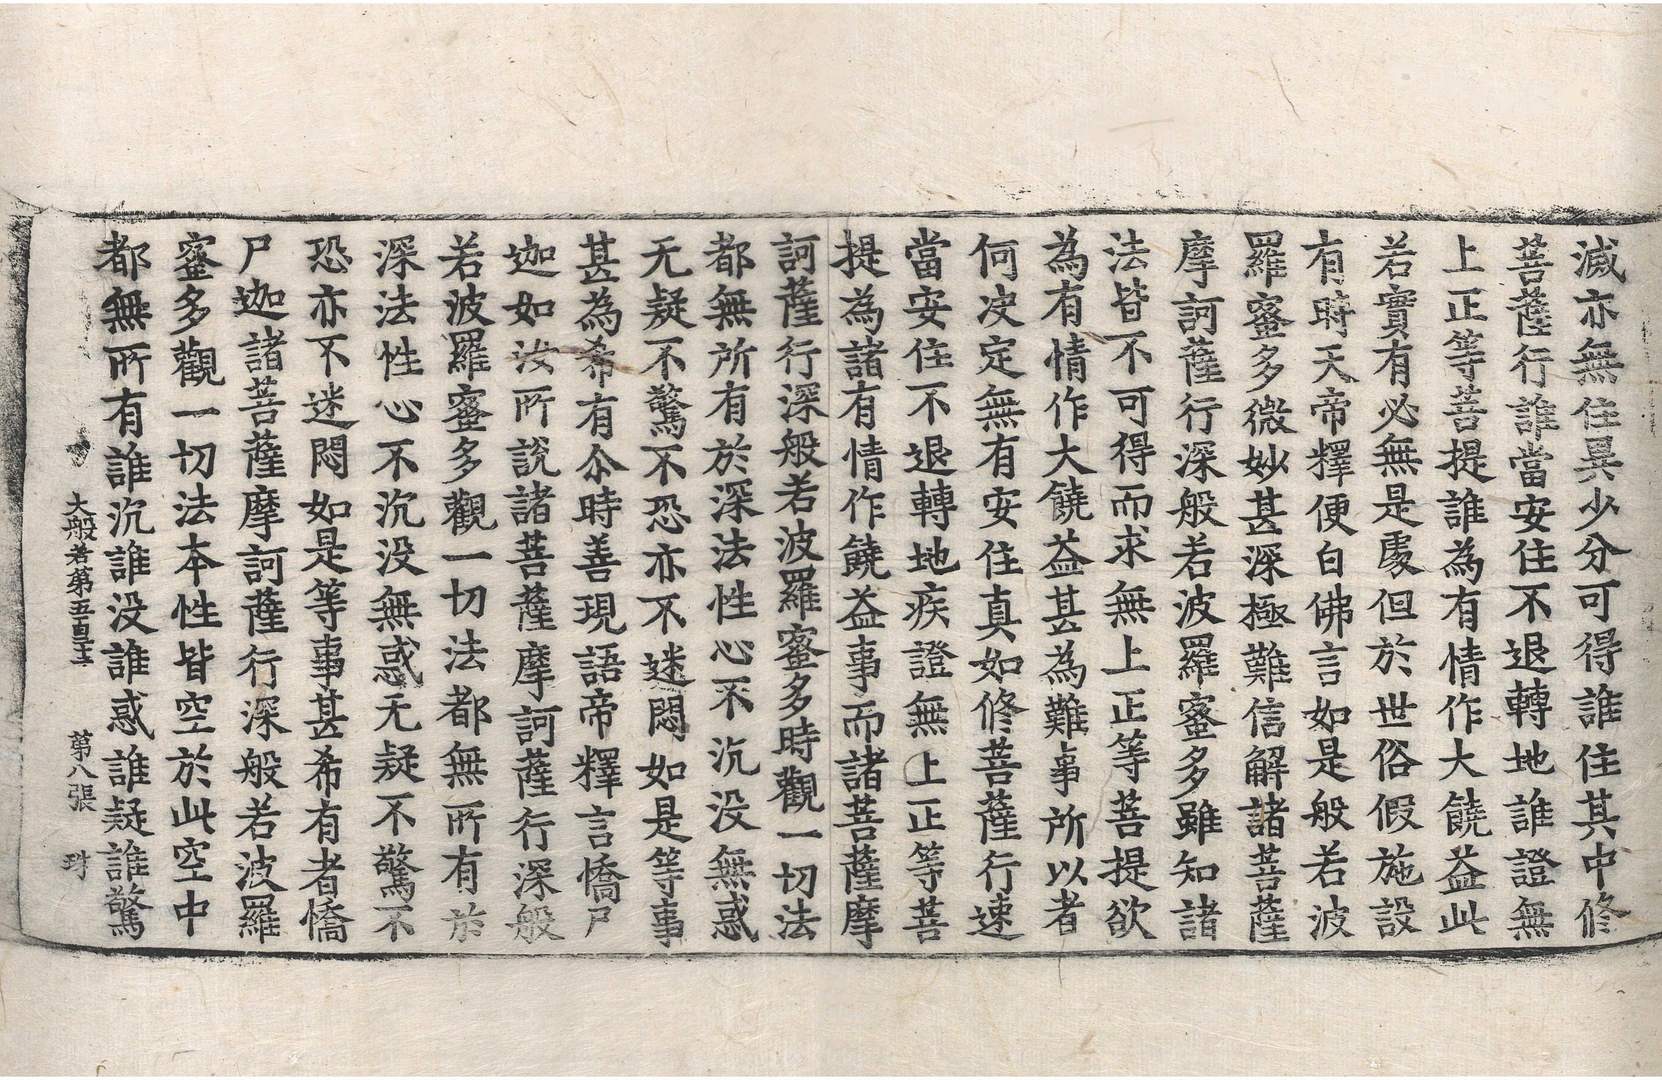 滅亦無住異少分可得誰住其中修
菩薩行誰當安住不退轉地誰證無
上正等菩提誰為有情作大饒益此
若實有必無是處但於世俗假施設
有時天帝釋便白佛言如是般若波
羅蜜多微妙甚深極難信解諸菩薩
摩訶薩行深般若波羅蜜多雖知諸
法皆不可得而求無上正等菩提欲
為有情作大饒益甚為難事所以者
何决定無有安住真如修菩薩行速
當安住不退轉地疾證無上正等菩
提為諸有情作饒益事而諸菩薩摩
訶薩行深般若波羅蜜多時觀一切法
都無所有於深法性心不沉没無惑
无疑不驚不恐亦不迷悶如是等事
甚為希有尒時善現語帝釋言憍尸
迦如汝所說諸菩薩摩訶薩行深般
若波羅蜜多觀一切法都無所有於
深法性心不沉没無惑无疑不驚不
恐亦不迷悶如是等事甚希有者憍
尸迦諸菩薩摩訶薩行深般若波羅
蜜多觀一切法本性皆空於此空中
都無所有誰沉誰没誰惑誰疑誰驚
大般若第五百 第八張